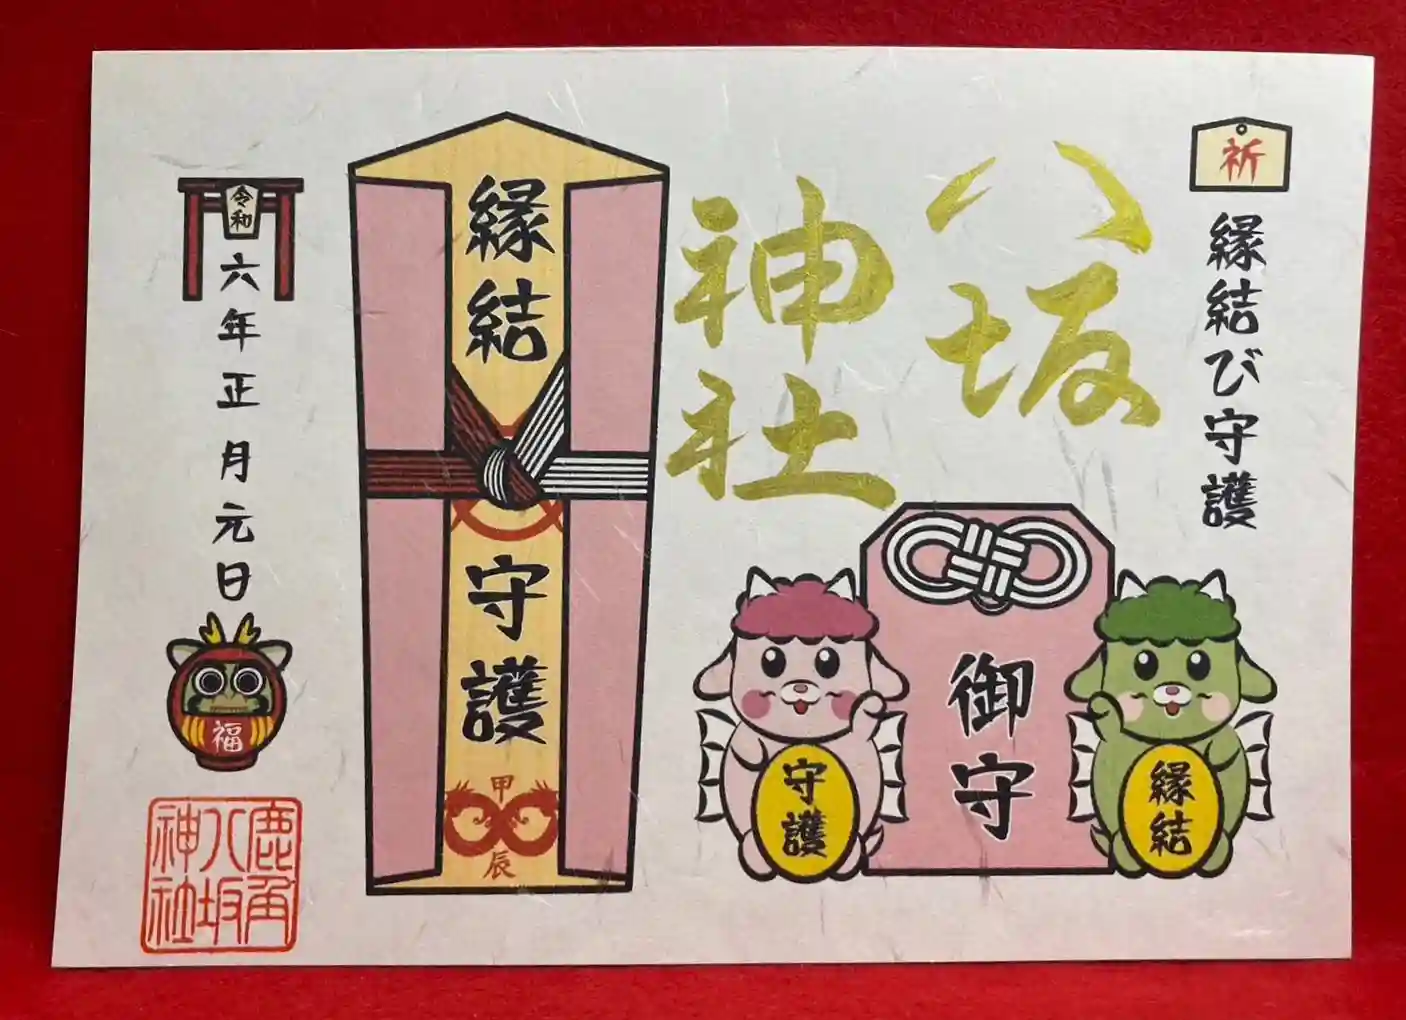 祈
縁結び守護
八坂
神社
御守
縁結
守護
縁結
守護
甲辰
令和
六年正月元日
福
鹿角
八坂
神社